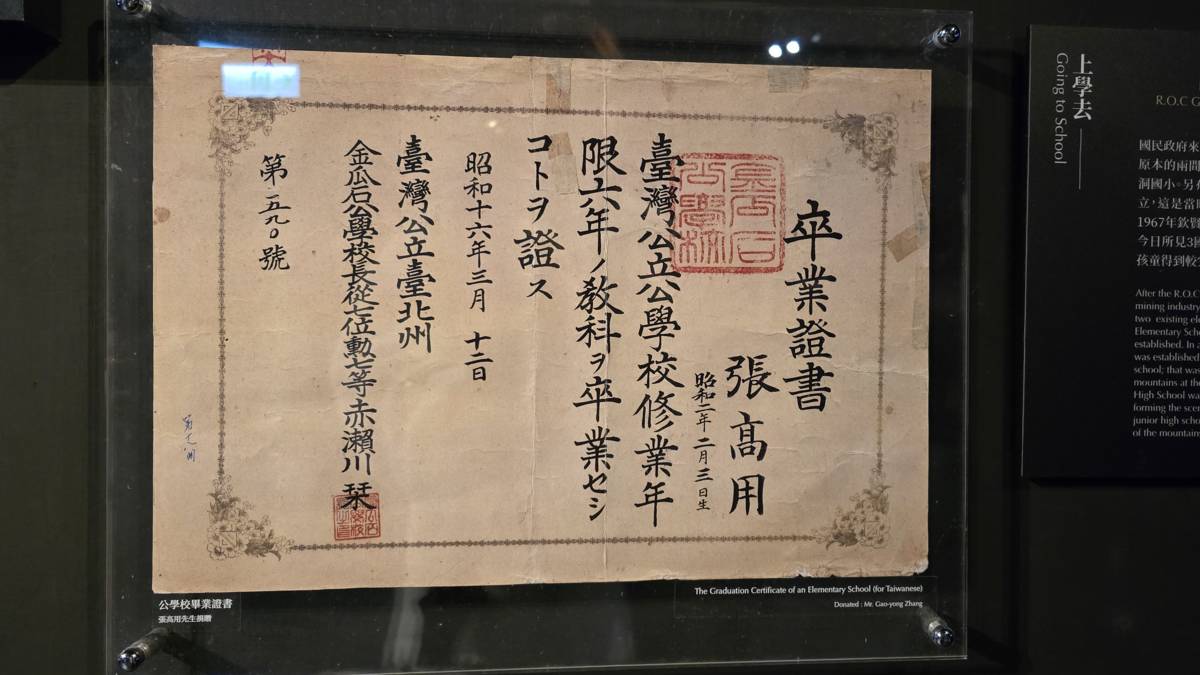 卒業證書
張高用
昭和二年二月三日生
臺灣公立公學校修業年
限六年ノ教科ヲ卒業セシ
コトヲ證ス
昭和十六年三月 十二日
臺灣公立臺北州
金瓜石公學校長從七位勳七等赤瀨川 栞
第二五九〇號
公學校畢業證書
張高用先生捐贈
The Graduation Certificate of an Elementary School (for Taiwanese)
Donated : Mr. Gao-yong Zhang
上學去
Going to School
R.O.C G
國民政府來
原本的兩間
洞國小。另
立，這是當
1967年欽
今日所見3
孩童得到較
After the R.O.C
mining industry
two existing ele
Elementary Scho
established. In a
was established
school; that was
mountains at the
High School wa
forming the scen
junior high scho
of the mountain